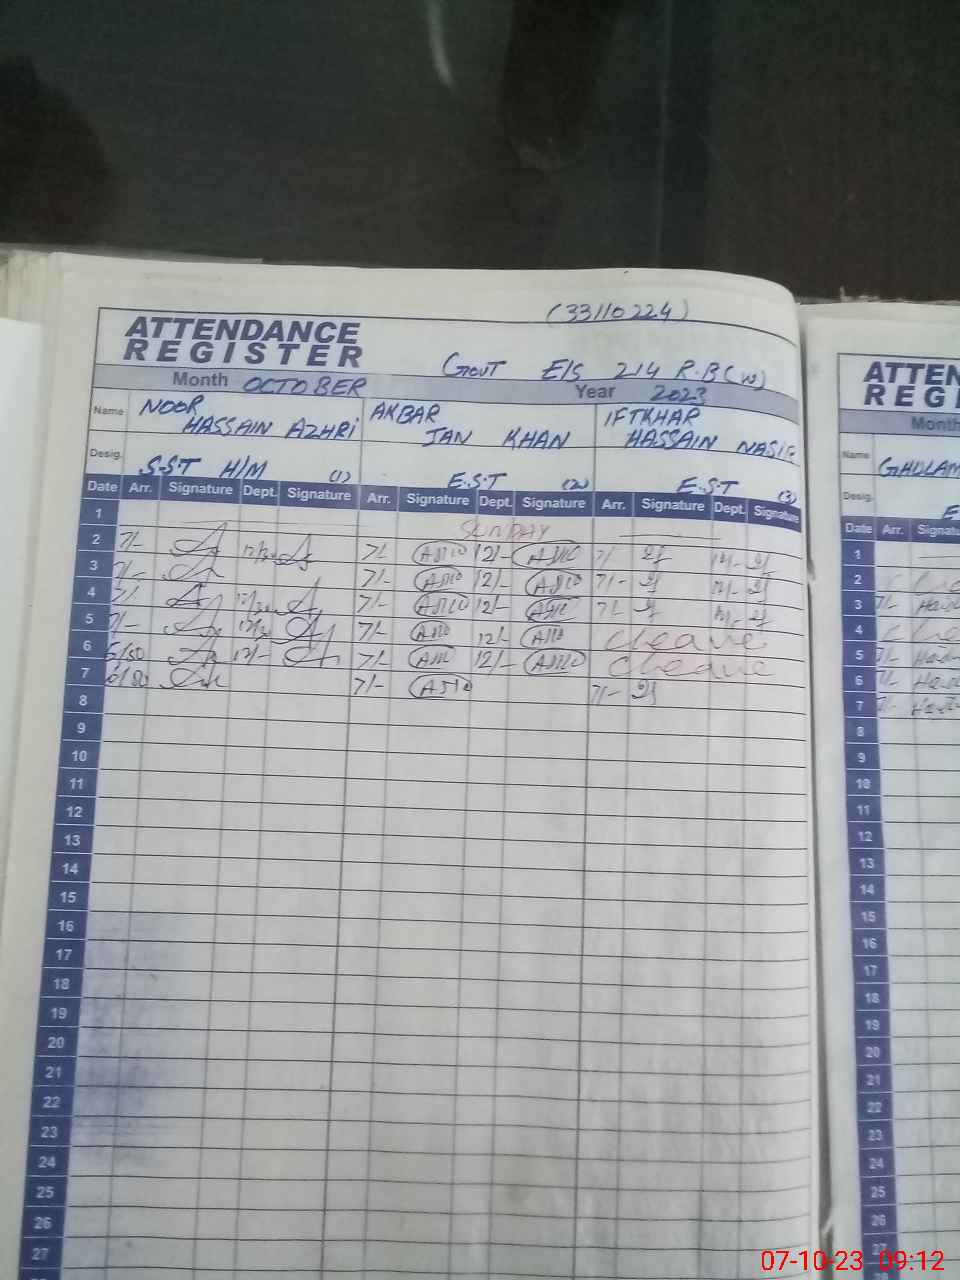 (33110224)
ATTENDANCE
REGISTER
GOVT E/S 214 R.B(W)
Month OCTOBER Year 2023
Name NOOR HASSAIN AZHRI AKBAR JAN KHAN IFTKHAR HASSAIN NASIR
Desig. S.S.T H/M (1) E.S.T (2) E.S.T (3)
Date Arr. Signature Dept. Signature Arr. Signature Dept. Signature Arr. Signature Dept. Signature
1 SUNDAY
2 7/- 7/- 12/- 7/-
3 7/- 7/- 12/- 7/-
4 7/- 7/- 12/- 7/-
5 7/- 7/- 12/- cleave
6 12/- 7/- 12/- cleave
7 7/- 7/-
8
9
10
11
12
13
14
15
16
17
18
19
20
21
22
23
24
25
26
27
ATTEN
REG
Month
Name GHULAM
Desig. E
Date Arr. Signatu
1
2
3 7/-
4
5 7/-
6 7/-
7 7/-
8
9
10
11
12
13
14
15
16
17
18
19
20
21
22
23
24
25
26
27
07-10-23 09:12